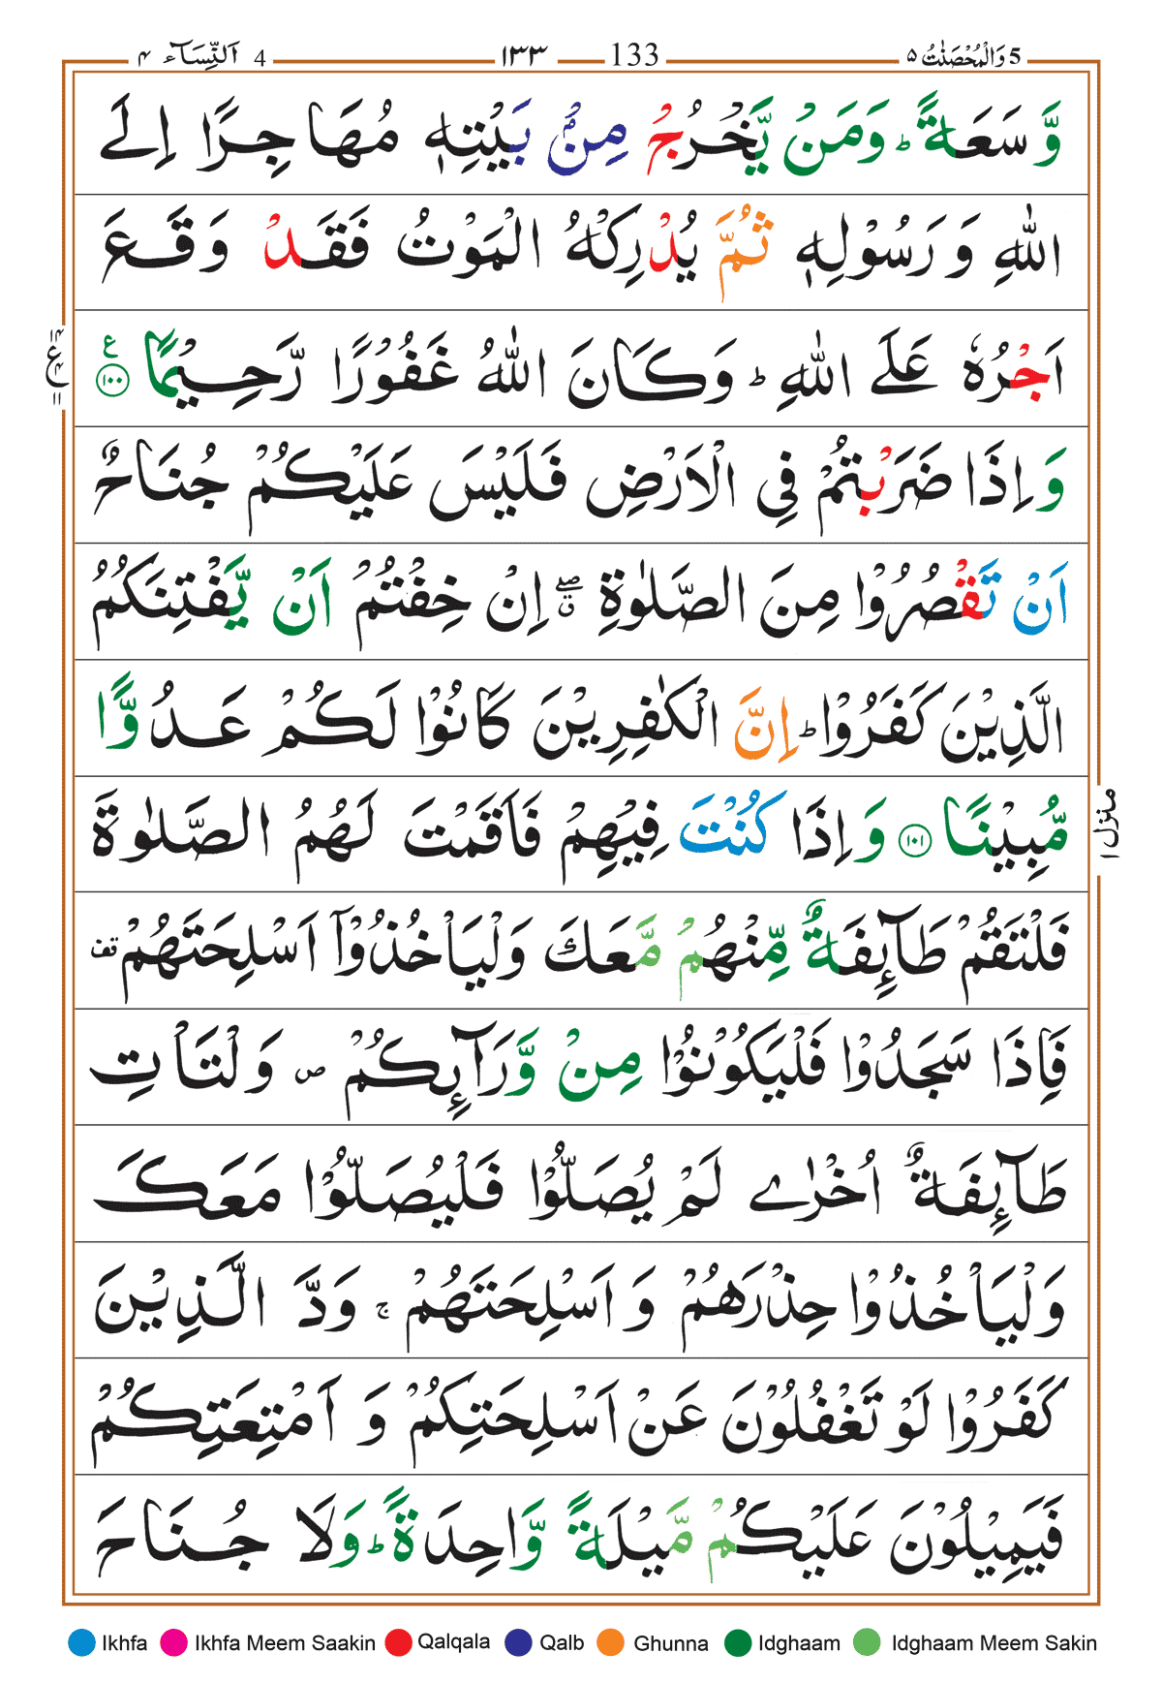 5 وَالْمُحْصَنٰتُ ۵ 133 ۱۳۳ 4 اَلنِّسَآء ۴
وَّ سَعَةً ؕ وَمَنْ يَّخْرُجْ مِنْۢ بَيْتِهٖ مُهَاجِرًا اِلَى
اللّٰهِ وَ رَسُوْلِهٖ ثُمَّ يُدْرِكْهُ الْمَوْتُ فَقَدْ وَقَعَ
اَجْرُهٗ عَلَى اللّٰهِ ؕ وَكَانَ اللّٰهُ غَفُوْرًا رَّحِيْمًا ۱۰۰ ع
۱۴ ع ۴ ۱۱
وَ اِذَا ضَرَبْتُمْ فِي الْاَرْضِ فَلَيْسَ عَلَيْكُمْ جُنَاحٌ
اَنْ تَقْصُرُوْا مِنَ الصَّلٰوةِ ۖۗ اِنْ خِفْتُمْ اَنْ يَّفْتِنَكُمُ
الَّذِيْنَ كَفَرُوْا ؕ اِنَّ الْكٰفِرِيْنَ كَانُوْا لَكُمْ عَدُوًّا
مُّبِيْنًا ۱۰۱ وَ اِذَا كُنْتَ فِيْهِمْ فَاَقَمْتَ لَهُمُ الصَّلٰوةَ
منزل ۱
فَلْتَقُمْ طَآئِفَةٌ مِّنْهُمْ مَّعَكَ وَلْيَاْخُذُوْٓا اَسْلِحَتَهُمْ قف
فَاِذَا سَجَدُوْا فَلْيَكُوْنُوْا مِنْ وَّرَآئِكُمْ ۪ وَلْتَاْتِ
طَآئِفَةٌ اُخْرٰى لَمْ يُصَلُّوْا فَلْيُصَلُّوْا مَعَكَ
وَلْيَاْخُذُوْا حِذْرَهُمْ وَ اَسْلِحَتَهُمْ ۚ وَدَّ الَّذِيْنَ
كَفَرُوْا لَوْ تَغْفُلُوْنَ عَنْ اَسْلِحَتِكُمْ وَ اَمْتِعَتِكُمْ
فَيَمِيْلُوْنَ عَلَيْكُمْ مَّيْلَةً وَّاحِدَةً ؕ وَلَا جُنَاحَ
Ikhfa Ikhfa Meem Saakin Qalqala Qalb Ghunna Idghaam Idghaam Meem Sakin